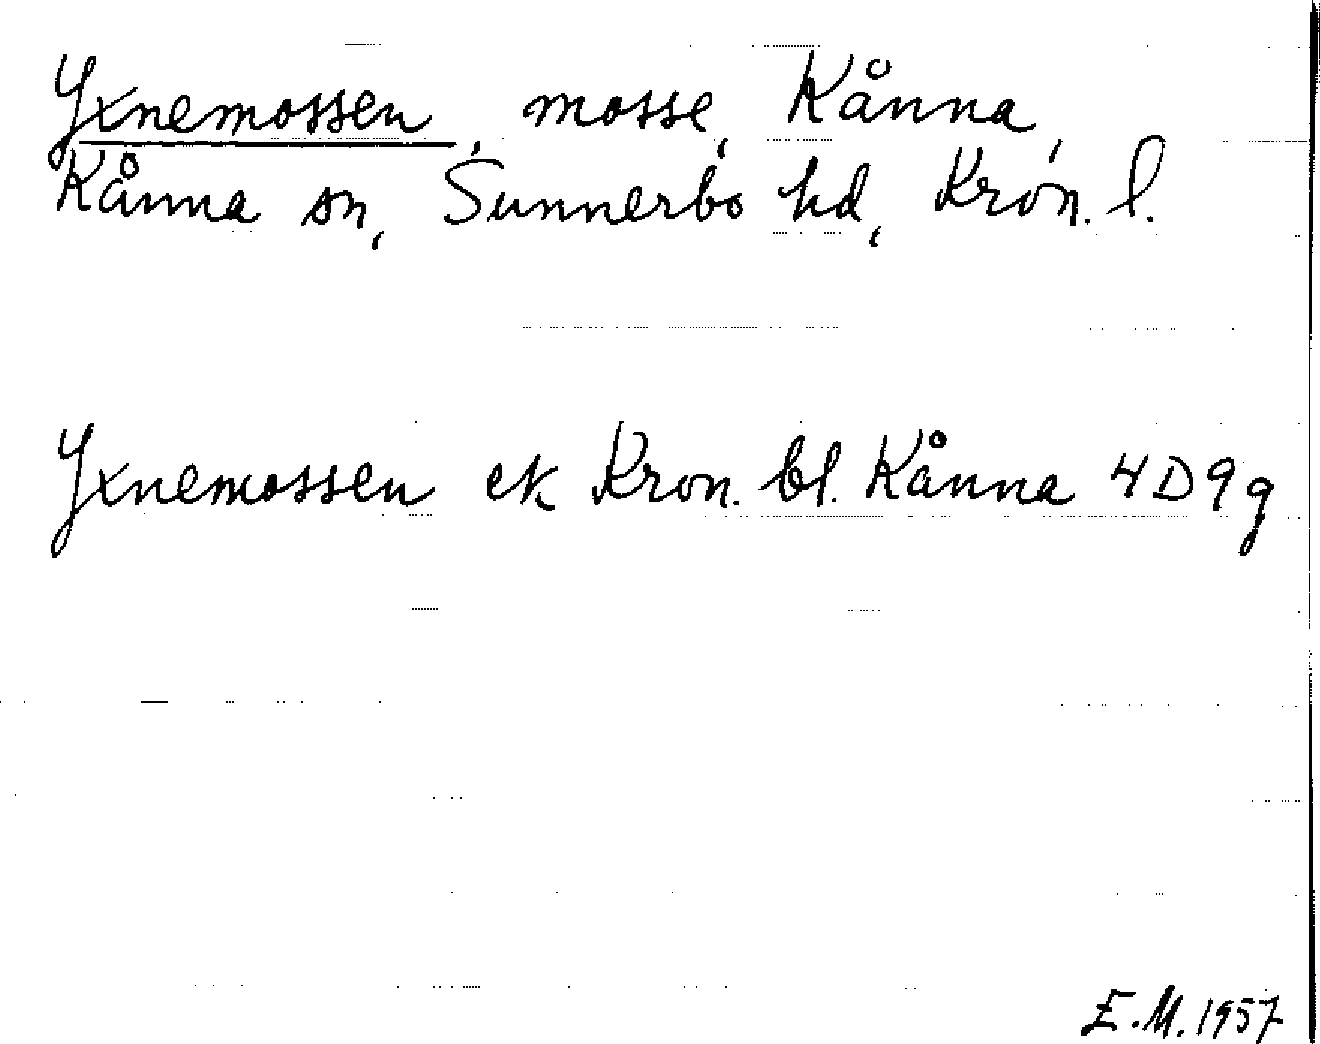 Yxnemossen, mosse, Kånna,
Kånna sn, Sunnerbo hd, Kron. l.
Yxnemossen ek Kron. bl. Kånna 4D9g
E.M. 1957